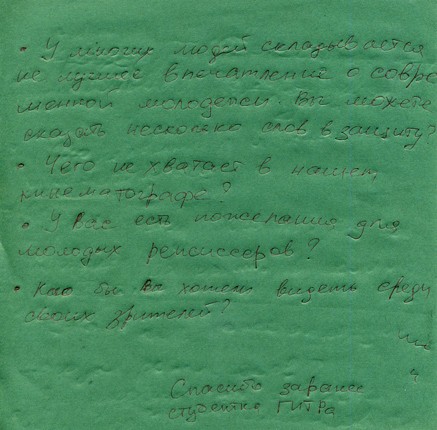 • У многих людей складывается
не лучшее впечатление о совре
менной молодежи. Вы можете
сказать несколько слов в защиту?
• Чего не хватает в нашем
кинематографе?
• У Вас есть пожелания для
молодых режиссеров?
• Кого бы Вы хотели видеть среди
своих зрителей?
Спасибо заранее
студентка ГИТРа